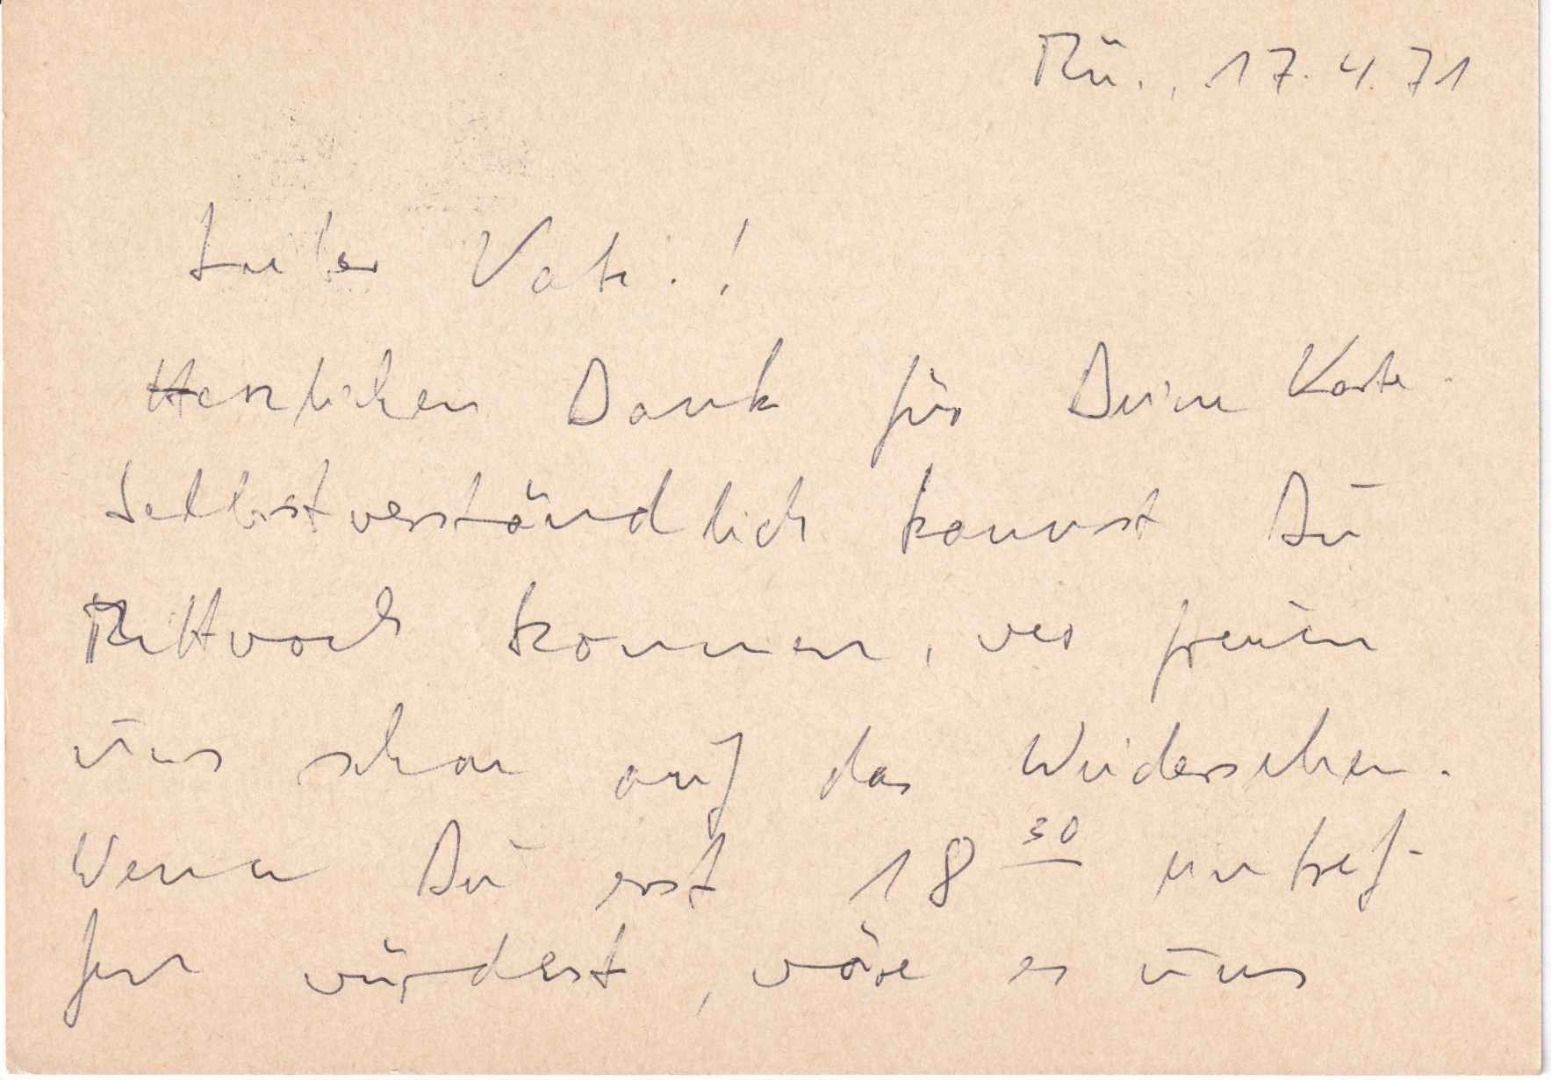 Mü., 17.4.71
Lieber Vati!
Herzlichen Dank für Deine Karte.
Selbstverständlich kannst Du
Mittwoch kommen, wir freuen
uns schon auf das Wiedersehen.
Wenn Du erst 18 30 eintref-
fen würdest, wäre es uns